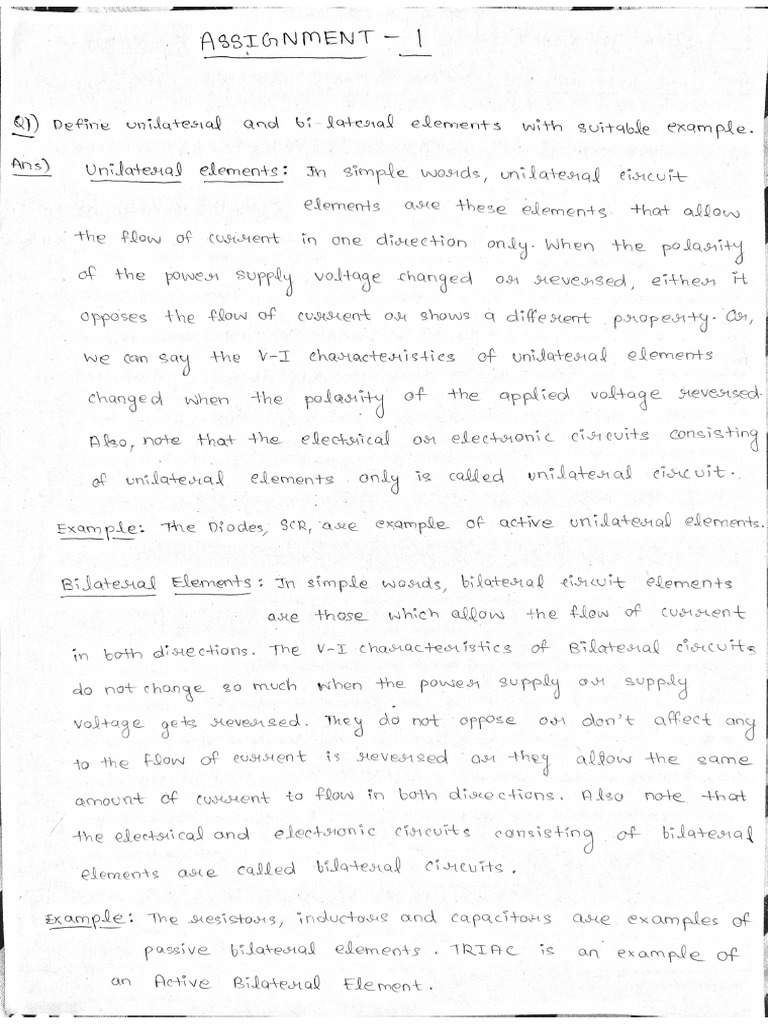 ASSIGNMENT - 1
Q1) Define unilateral and bi-lateral elements with suitable example.
Ans) Unilateral elements: In simple words, unilateral circuit
elements are these elements that allow
the flow of current in one direction only. When the polarity
of the power supply voltage changed or reversed, either it
opposes the flow of current or shows a different property. Or,
we can say the V-I characteristics of unilateral elements
changed when the polarity of the applied voltage reversed.
Also, note that the electrical or electronic circuits consisting
of unilateral elements only is called unilateral circuit.
Example: The Diodes, SCR, are example of active unilateral elements.
Bilateral Elements: In simple words, bilateral circuit elements
are those which allow the flow of current
in both directions. The V-I characteristics of Bilateral circuits
do not change so much when the power supply or supply
voltage gets reversed. They do not oppose or don't affect any
to the flow of current is reversed or they allow the same
amount of current to flow in both directions. Also note that
the electrical and electronic circuits consisting of bilateral
elements are called bilateral circuits.
Example: The resistors, inductors and capacitors are examples of
passive bilateral elements. TRIAC is an example of
an Active Bilateral Element.